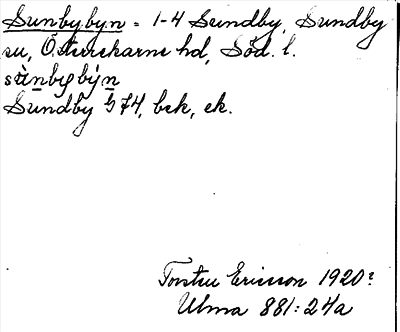 Sunbybyn = 1-4 Sundby, Sundby
su, Österrekarne hd, Söd. l.
sùnbybýn
Sundby G 74, bek, ek.
Torsten Ericsson 1920?
Ulma 881:24a